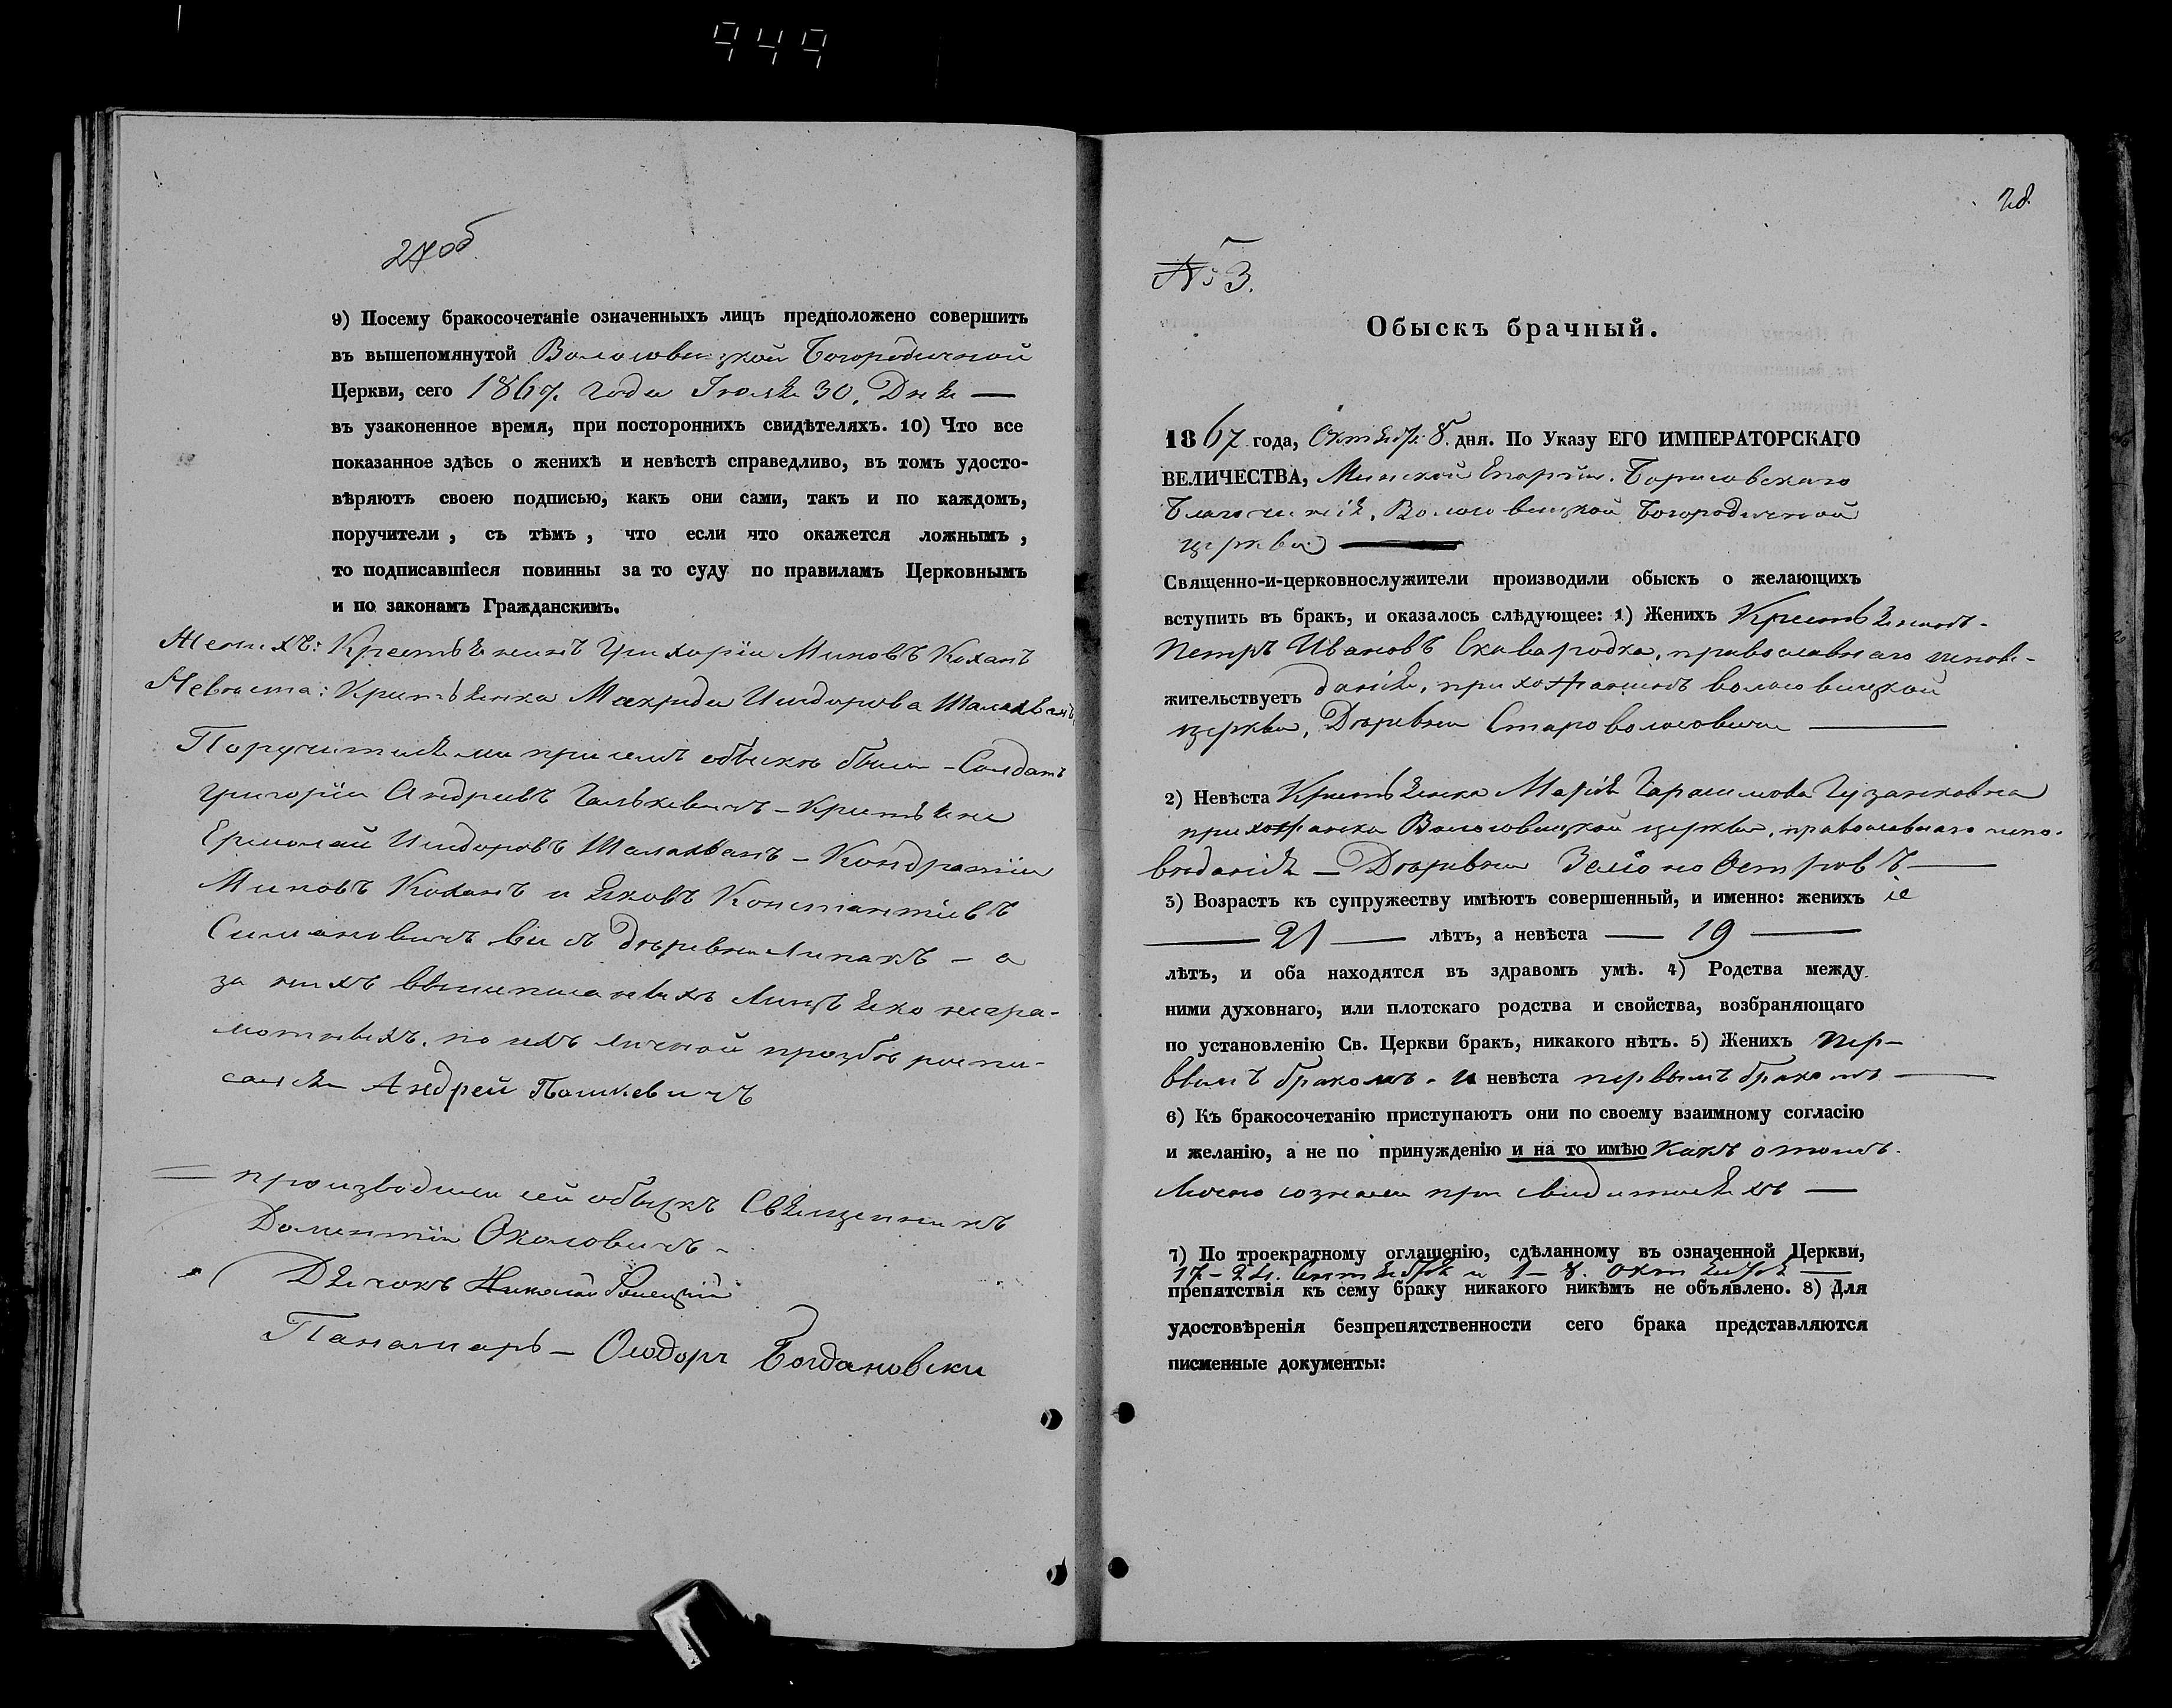 949
27об
9) Посему бракосочетаніе означенныхъ лицъ предположено совершить
въ вышепомянутой Волосовицкой Богородичной
Церкви, сего 1867. года Іюля 30. Дня —
въ узаконенное время, при постороннихъ свидѣтеляхъ. 10) Что все
показанное здѣсь о женихѣ и невѣстѣ справедливо, въ томъ удосто-
вѣряютъ своею подписью, какъ они сами, такъ и по каждомъ,
поручители, съ тѣмъ, что если что окажется ложнымъ,
то подписавшіеся повинны за то суду по правиламъ Церковнымъ
и по законамъ Гражданскимъ.
Женихъ: Крестьянинъ Григорій Миновъ Коханъ
Невѣста: Крестьянка Макрида Исидорова
Поручителями при семъ обыскѣ были – Солдатъ
Григорій Андреевъ – Крестьяне
Ермолай Исидоровъ – Кондратій
Миновъ Коханъ и Яковъ Константіевъ
Симановичъ всѣ съ Дѣревни – а
за нихъ вышеписанныхъ лицъ яко негра-
мотныхъ. по ихъ личной прозбѣ роспи-
сался Андрей Пашкевичъ
производили сей обыскъ Священникъ
Доментій Околовичъ –
Дячокъ Николай
Панамарь – Ѳеодоръ Богдановски
28.
№ 3.
Обыскъ брачный.
1867 года, Октября 8. дня. По Указу ЕГО ИМПЕРАТОРСКАГО
ВЕЛИЧЕСТВА, Минской Епархіи. Борисовскаго
Благочинія. Волосовицкой Богородичной
церкви —
Священно-и-церковнослужители производили обыскъ о желающихъ
вступить въ бракъ, и оказалось слѣдующее: 1) Женихъ Крестьянинъ-
Петръ Ивановъ Скавародка, православнаго испове-
жительствуетъ данія, прихожанинъ волосовицкой
церкви, Дѣревни Староволосовичи —
2) Невѣста Крестьянка Марія Гарасимова Гузанковна
прихожанка Волосовицкой церкви, православнаго испо-
вѣданія – Дѣревни Зелёно Островъ —
3) Возрастъ къ супружеству имѣютъ совершенный, и именно: женихъ іе
— 21 — лѣтъ, а невѣста — 19 —
лѣтъ, и оба находятся въ здравомъ умѣ. 4) Родства между
ними духовнаго, или плотскаго родства и свойства, возбраняющаго
по установленію Св. Церкви бракъ, никакого нѣтъ. 5) Женихъ пер-
вымъ бракомъ. и невѣста первымъ бракомъ —
6) Къ бракосочетанію приступаютъ они по своему взаимному согласію
и желанію, а не по принужденію и на то имѣю какъ о томъ
лично сознали при свидѣтеляхъ —
7) По троекратному оглашенію, сдѣланному въ означенной Церкви,
17 – 24. Сентября и 1 – 8. октября —
препятствія къ сему браку никакого никѣмъ не объявлено. 8) Для
удостовѣренія безпрепятственности сего брака представляются
писменные документы: